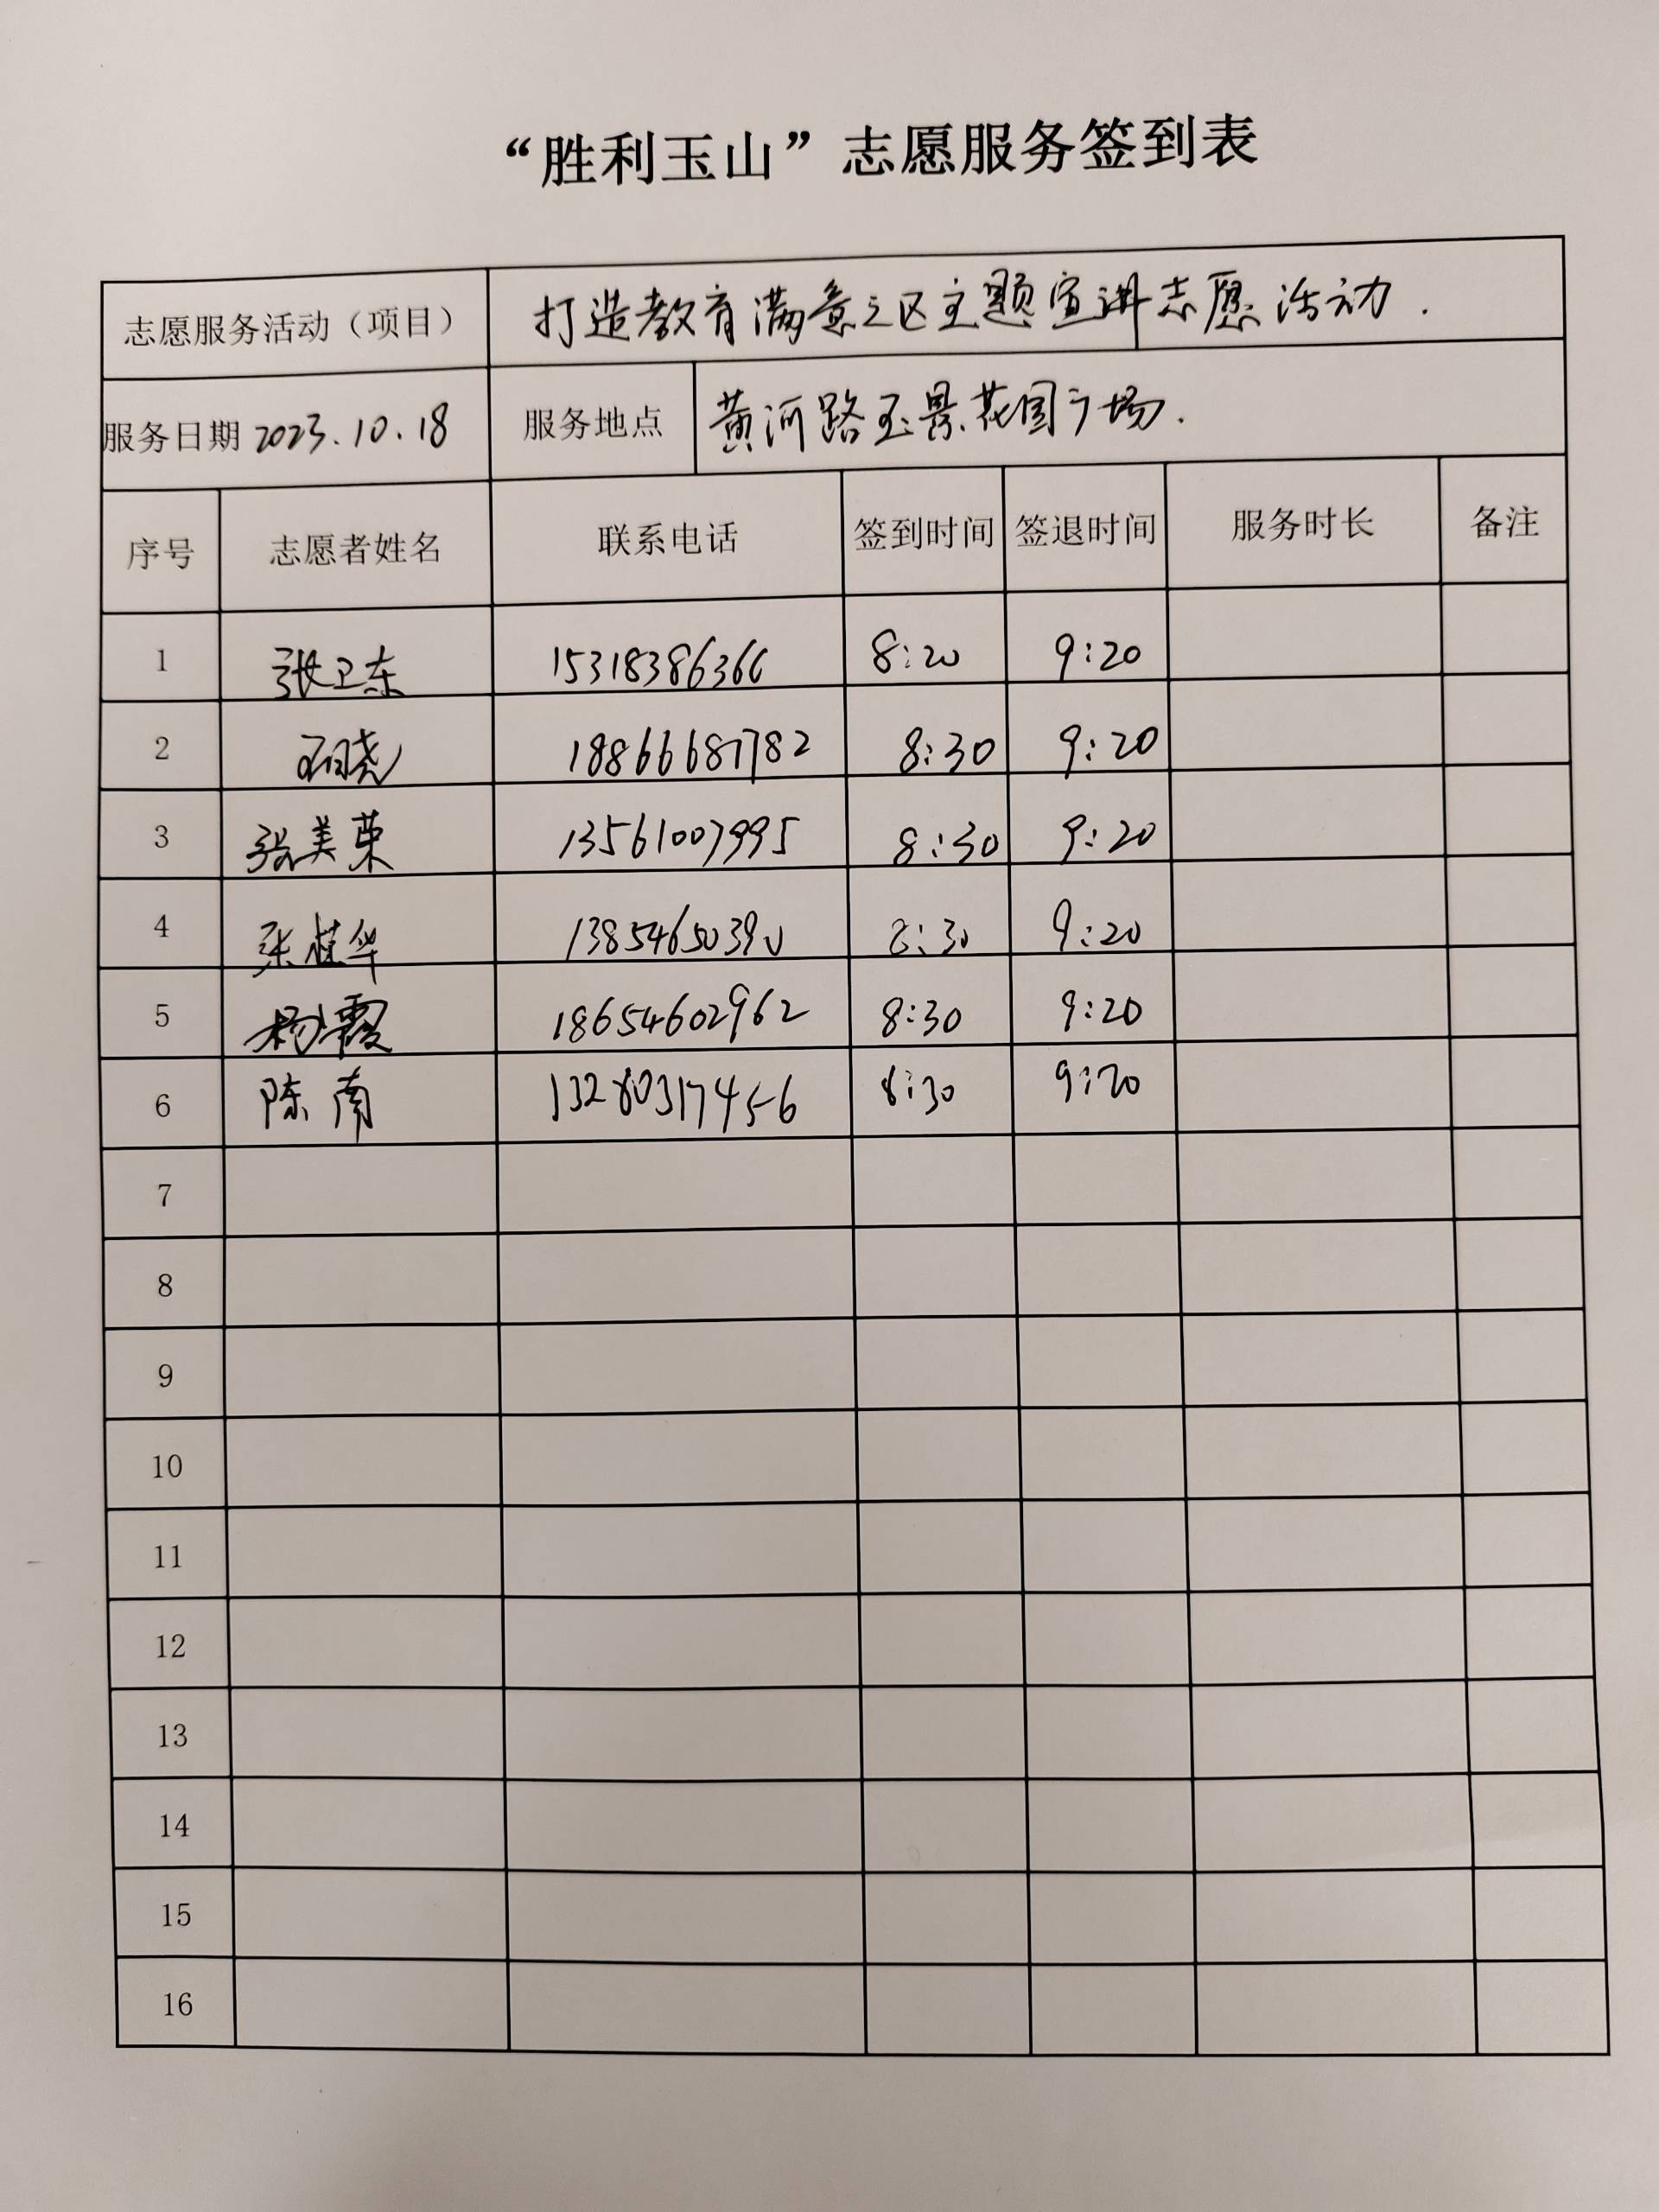 “胜利玉山”志愿服务签到表
志愿服务活动（项目） 打造教育满意之区主题宣讲志愿活动.
服务日期 2023.10.18 服务地点 黄河路玉景花园广场.
序号 志愿者姓名 联系电话 签到时间 签退时间 服务时长 备注
1 张卫东 15318386366 8:20 9:20
2 18866687782 8:30 9:20
3 张美荣 13561007995 8:30 9:20
4 13854650390 8:30 9:20
5 杨霞 18654602962 8:30 9:20
6 陈南 13280317456 8:30 9:20
7
8
9
10
11
12
13
14
15
16